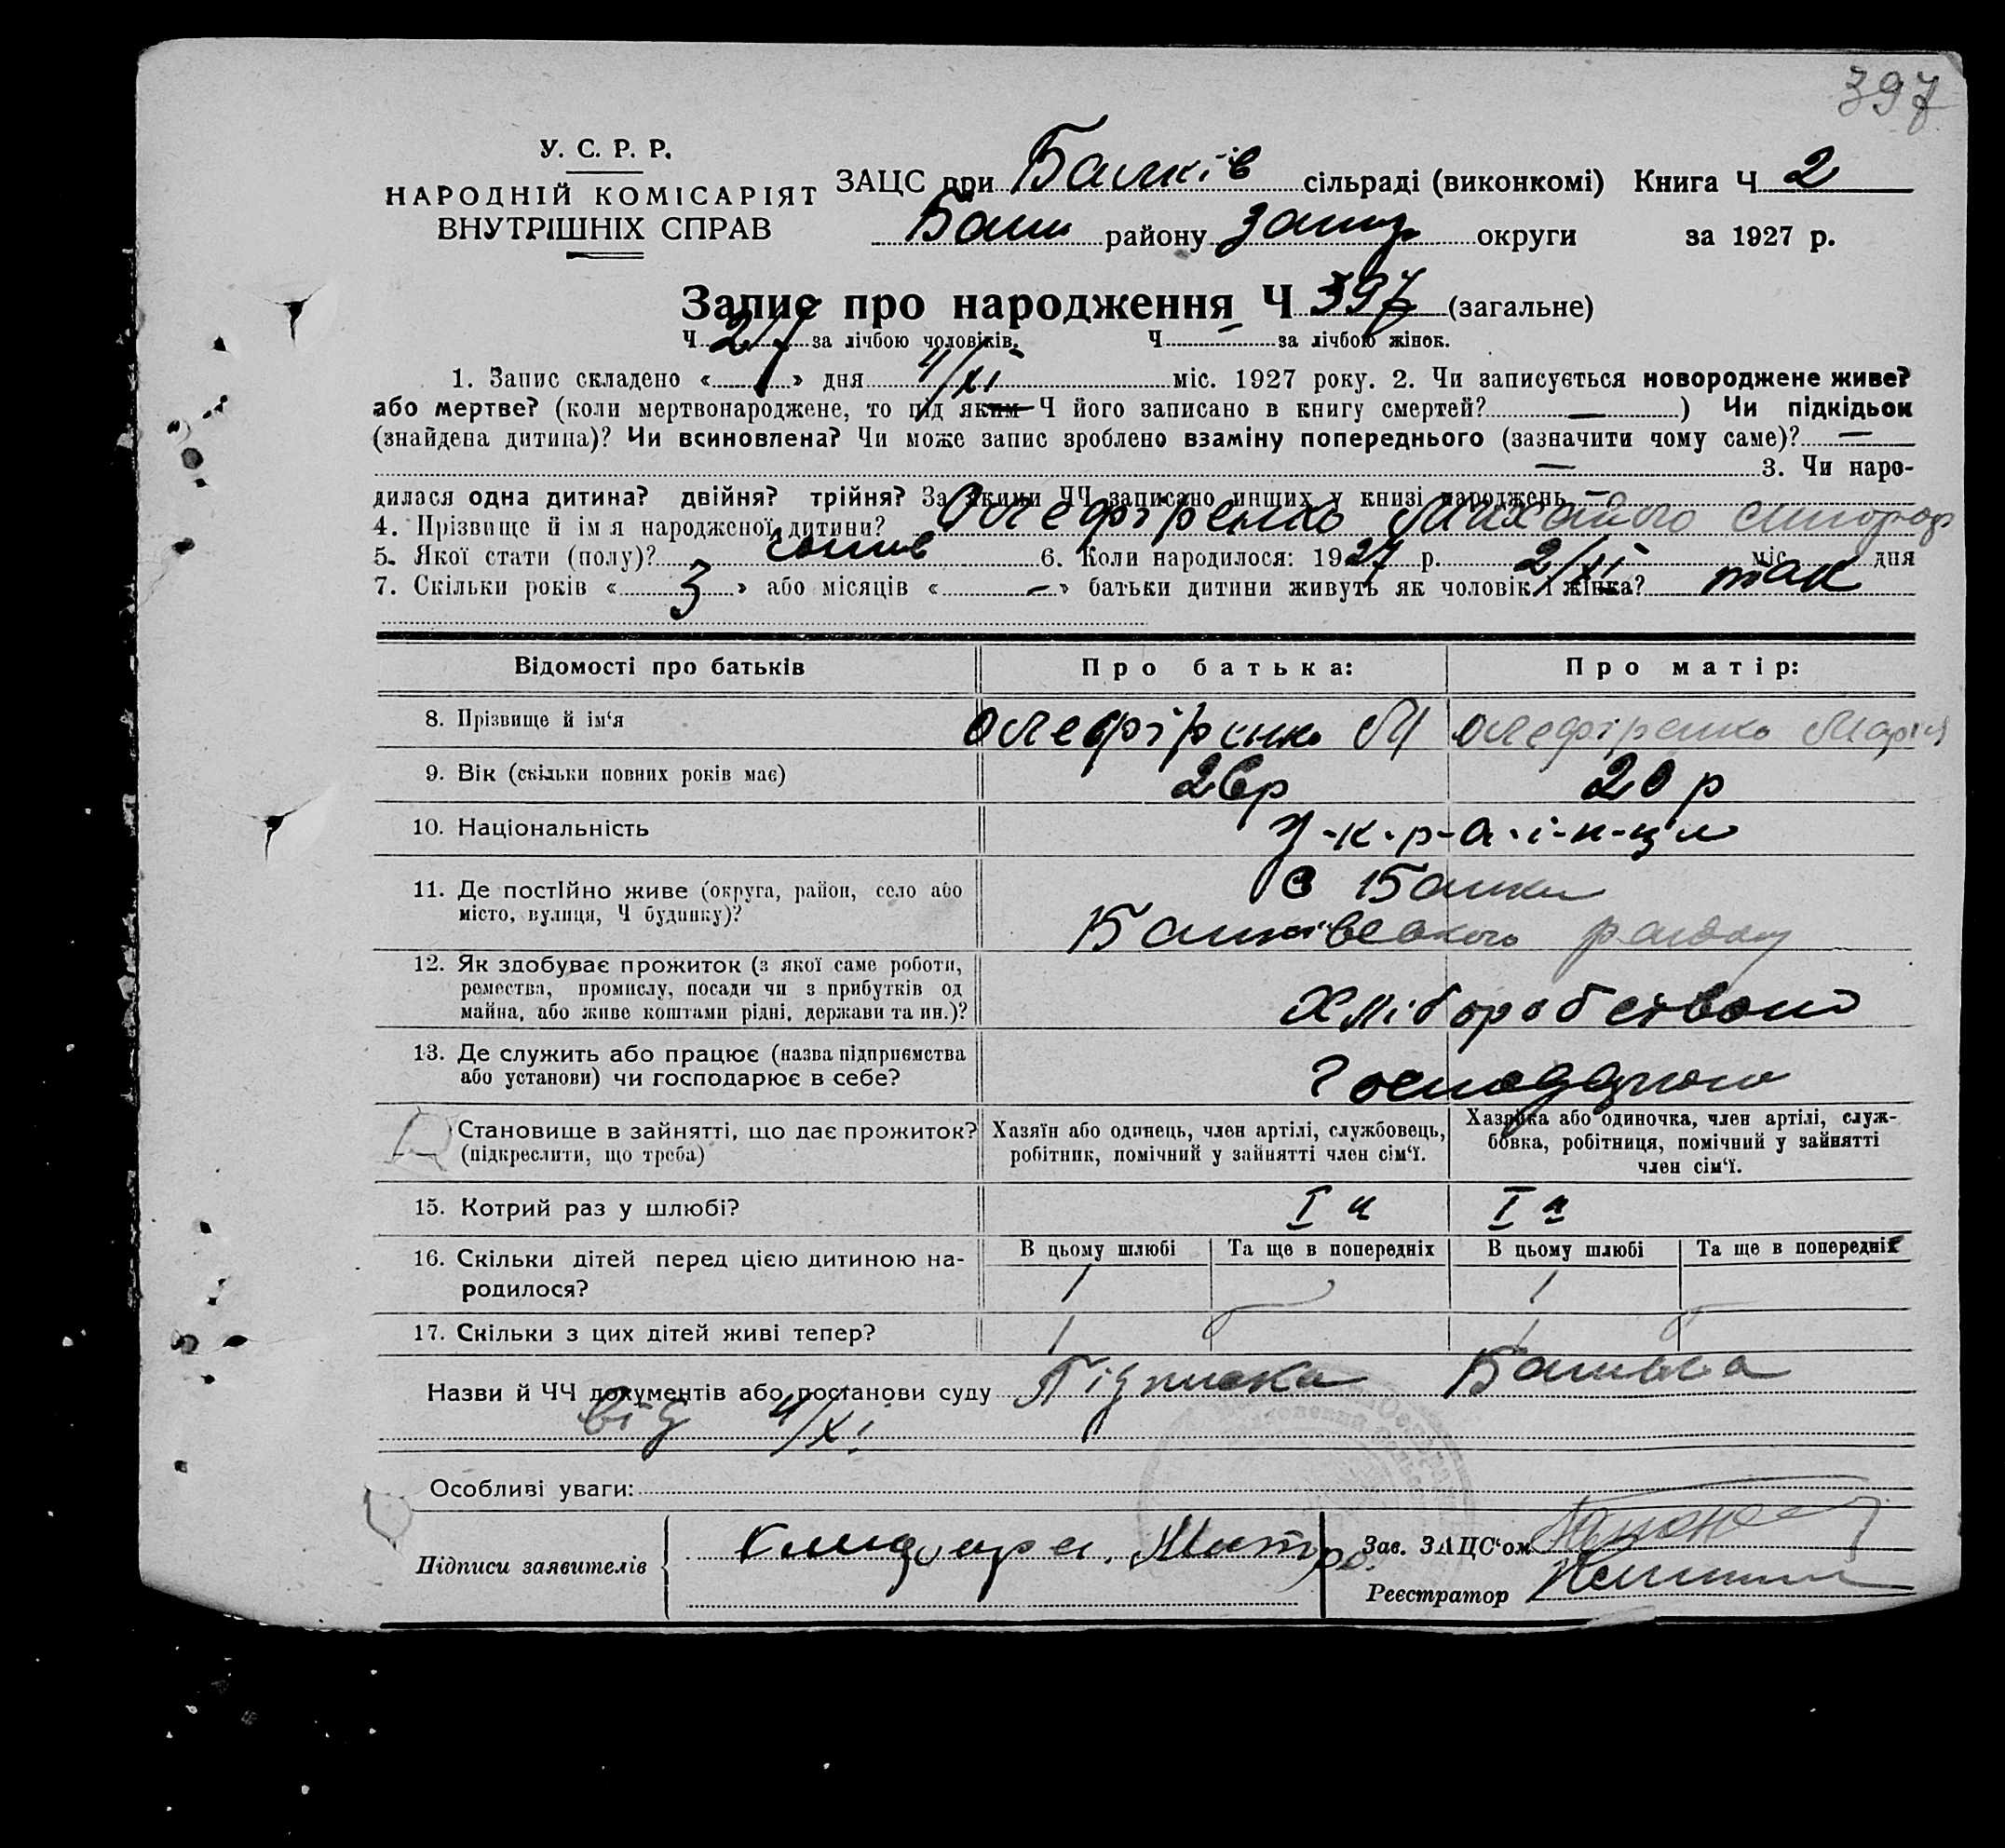 397
У. С. Р. Р.
НАРОДНІЙ КОМІСАРІЯТ
ВНУТРІШНІХ СПРАВ
ЗАЦС при Балків сільраді (виконкомі) Книга Ч 2
району Запор округи за 1927 р.
Запис про народження Ч 397 (загальне)
Ч за лічбою чоловіків. Ч – за лічбою жінок.
1. Запис складено « » дня 4/XI міс. 1927 року. 2. Чи записується новороджене живе?
або мертве? (коли мертвонароджене, то під яким Ч його записано в книгу смертей? — ) Чи підкідьок
(знайдена дитина)? Чи всиновлена? Чи може запис зроблено взаміну попереднього (зазначити чому саме)? —
— 3. Чи наро-
дилася одна дитина? двійня? трійня? За якими ЧЧ записано инших у книзі народжень –
4. Прізвище й імя народженої дитини? Олефіренко
5. Якої стати (полу)? 6. Коли народилося: 1927 р. 2/XI міс. дня
7. Скільки років « 3 » або місяців « – » батьки дитини живуть як чоловік і жінка? так
Відомості про батьків Про батька: Про матір:
8. Прізвище й ім‘я Олефіренко М Олефіренко Марія
9. Вік (скільки повних років має) 26р 20 р
10. Національність У-к-р-а-і-н-ц
11. Де постійно живе (округа, район, село або
місто, вулиця, Ч будинку)?
району
12. Як здобуває прожиток (з якої саме роботи,
ремества, промислу, посади чи з прибутків од
майна, або живе коштами рідні, держави та ин.)? Хліборобством
13. Де служить або працює (назва підприємства
або установи) чи господарює в себе?
Становище в зайнятті, що дає прожиток?
(підкреслити, що треба)
Хазяїн або одинець, член артілі, службовець,
робітник, помічний у зайнятті член сім‘ї.
Хазяйка або одиночка, член артілі, служ-
бовка, робітниця, помічний у зайнятті
член сім‘ї.
15. Котрий раз у шлюбі? I й I й
16. Скільки дітей перед цією дитиною на-
родилося?
В цьому шлюбі Та ще в попередніх В цьому шлюбі Та ще в попередніх
1 1
17. Скільки з цих дітей живі тепер? 1 1
Назви й ЧЧ документів або постанови суду Підписка Батька
від 4/XI
Особливі уваги:
Підписи заявителів
Зав. ЗАЦС‘ом
Реєстратор